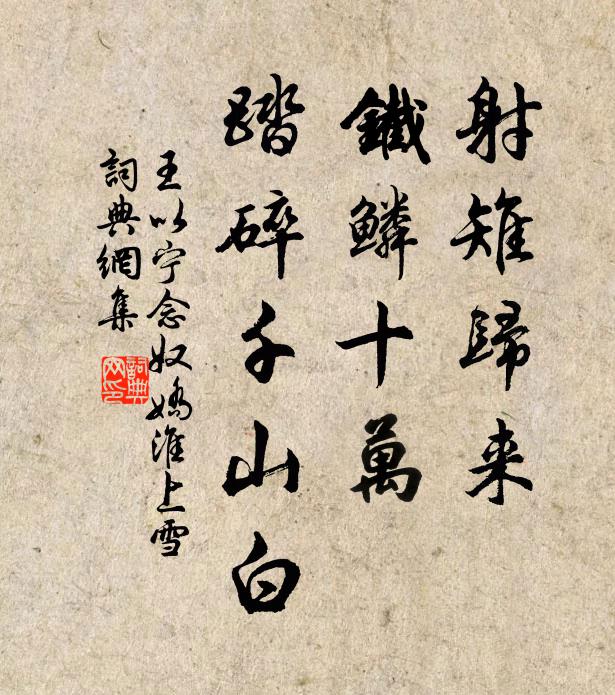 射雉歸来
鐵鳞十萬
踏碎千山白
王以宁念奴嬌淮上雪
詞典網集
詞典
网印